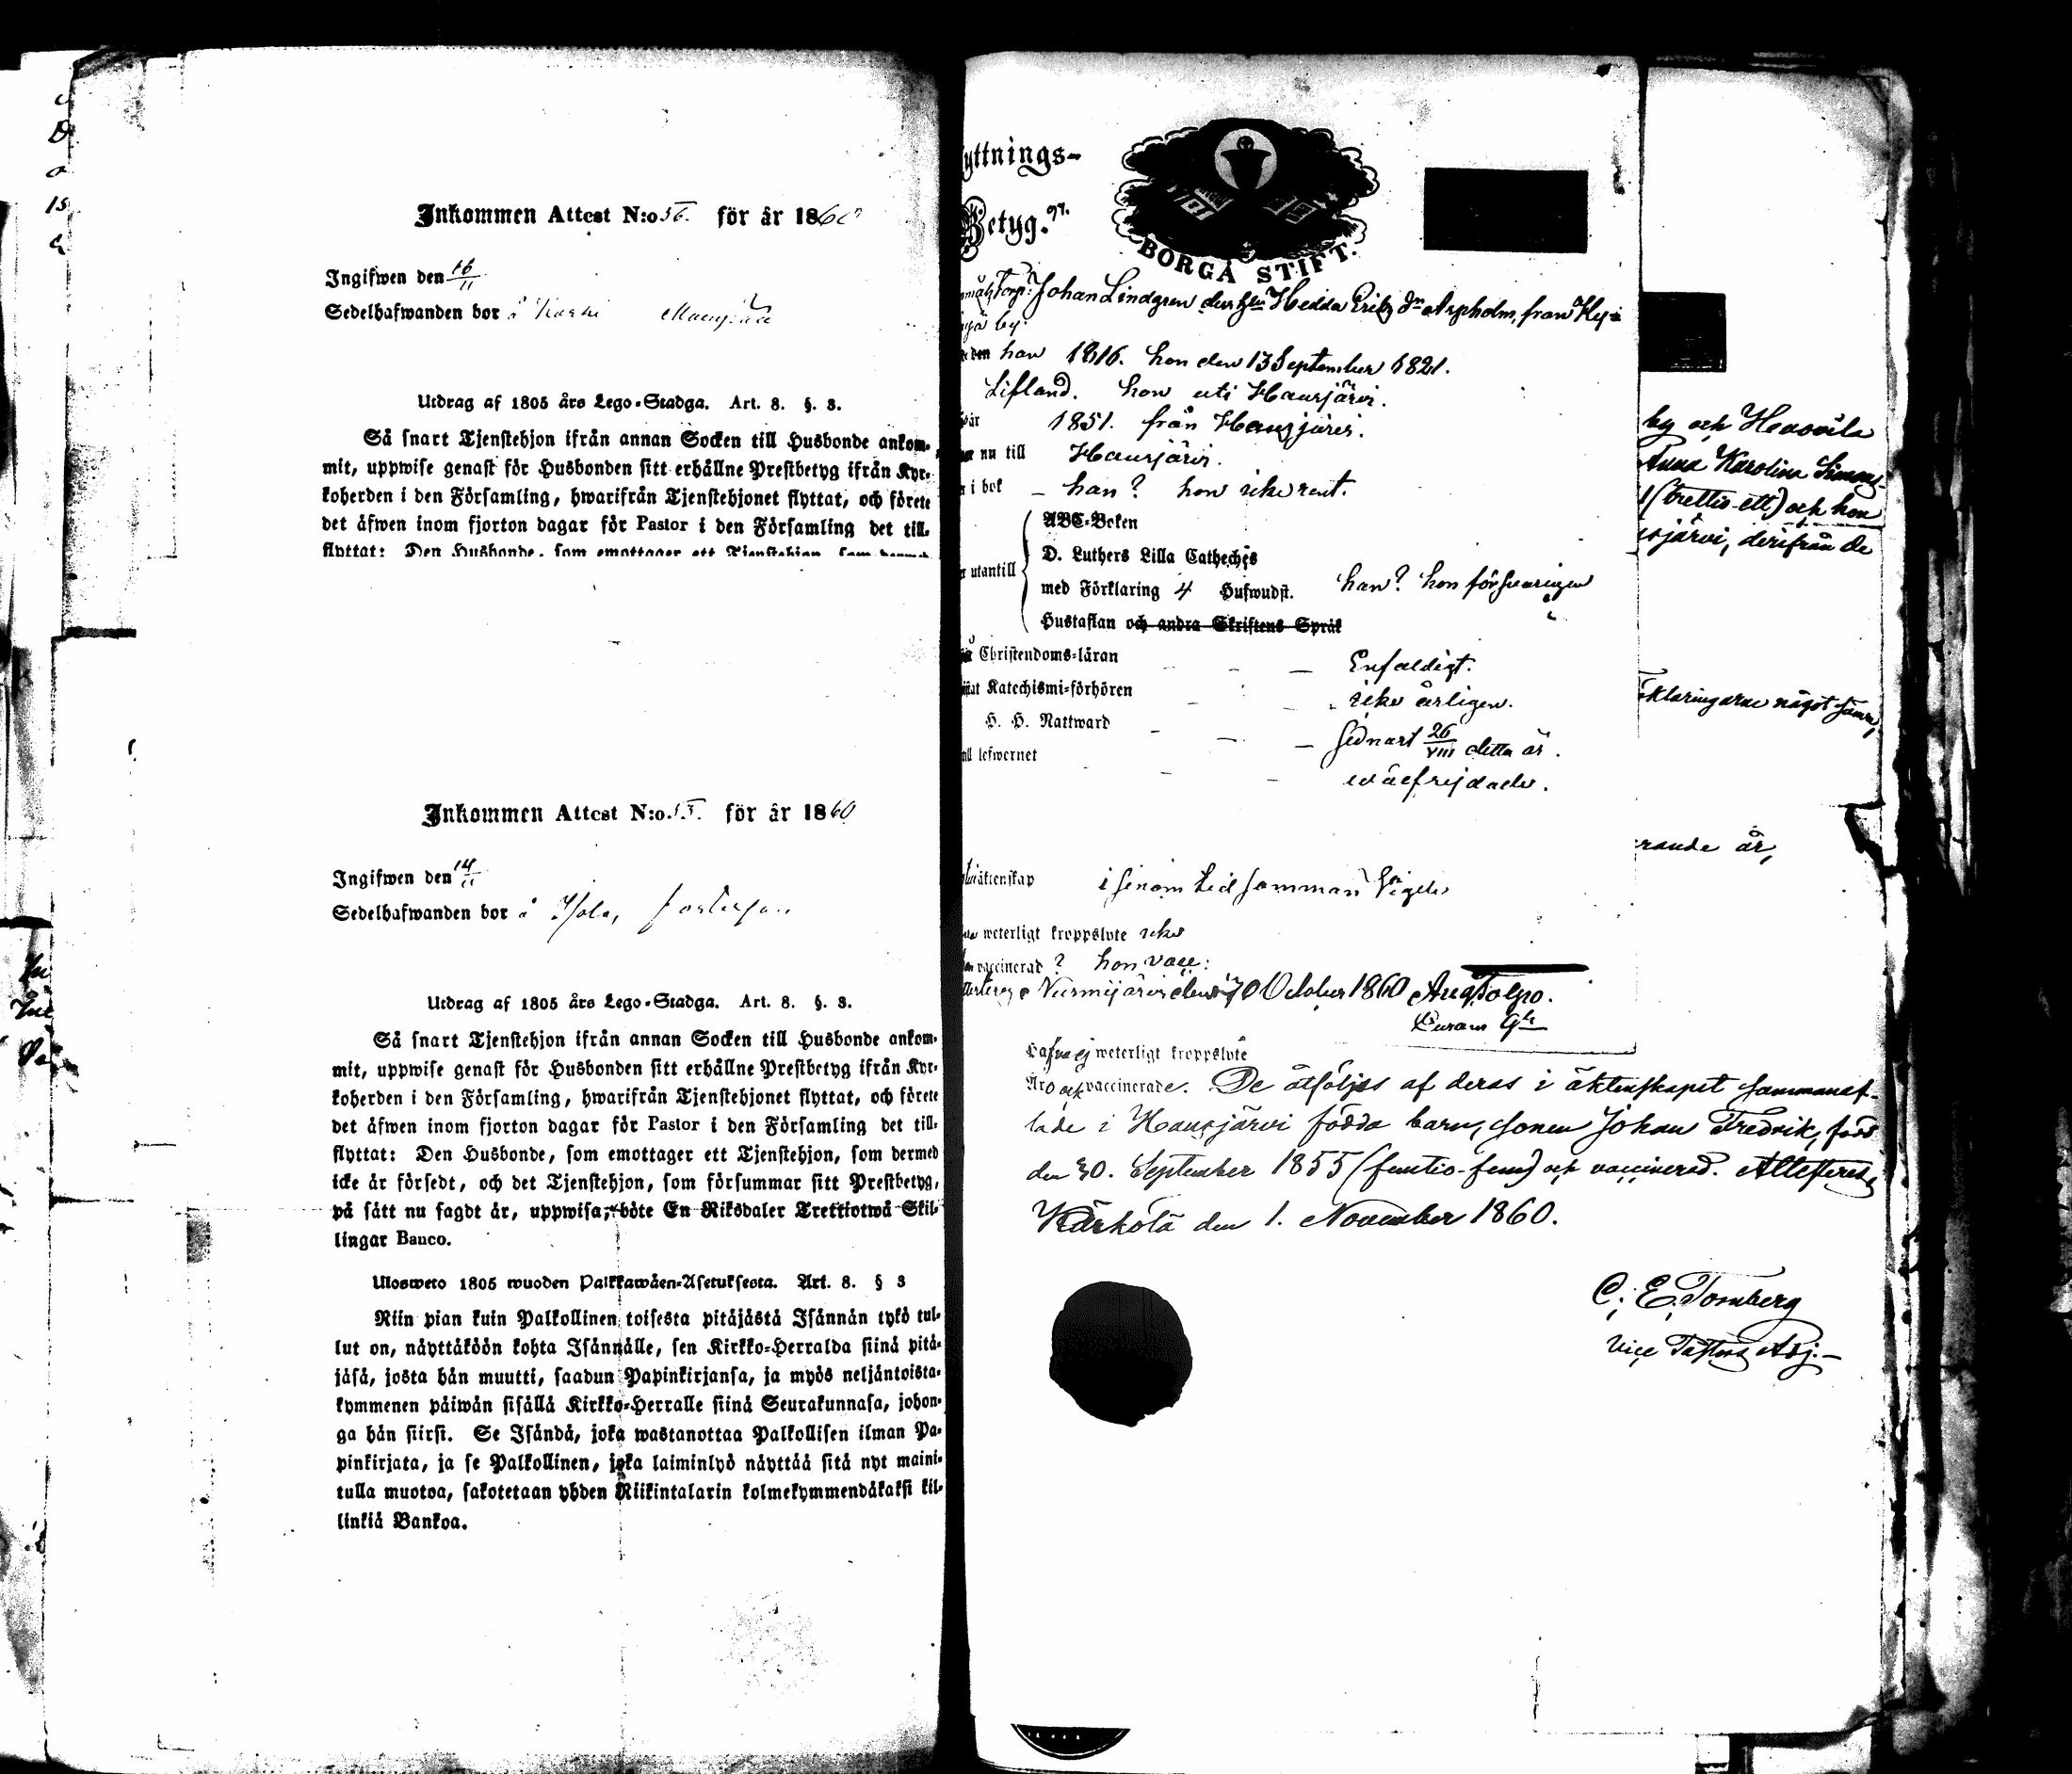 Inkommen Attest N:o 56. för år 1860
Ingifwen den 16/11
Sedelhafwanden bor å
Utdrag af 1805 års Lego-Stadga. Art. 8. §. 3.
Så snart Tjenstehjon ifrån annan Socken till Husbonde ankom-
mit, uppwise genast för Husbonden sitt erhållne Prestbetyg ifrån Kyr-
koherden i den Församling, hwarifrån Tjenstehjonet flyttat, och förete
det äfwen inom fjorton dagar för Pastor i den Församling det till-
flyttat: Den Husbonde, som emottager ett Tjenstehjon, som dermed
Inkommen Attest N:o för år 1860
Ingifwen den 14/11
Sedelhafwanden bor å
Utdrag af 1805 års Lego-Stadga. Art. 8. §. 3.
Så snart Tjenstehjon ifrån annan Socken till Husbonde ankom-
mit, uppwise genast för Husbonden sitt erhållne Prestbetyg ifrån Kyr-
koherden i den Församling, hwarifrån Tjenstehjonet flyttat, och förete
det äfwen inom fjorton dagar för Pastor i den Församling det till-
flyttat: Den Husbonde, som emottager ett Tjenstehjon, som dermed
icke är försedt, och det Tjenstehjon, som försummar sitt Prestbetyg,
på sätt nu sagdt är, uppwisa, böte En Riksdaler Trettiotwå Skil-
lingar Banco.
Ulosweto 1805 wuoden Palkkawäen-Asetuksesta. Art. 8. § 3
Niin pian kuin Palkollinen toisesta pitäjästä Isännän tykö tul-
lut on, näyttäköön kohta Isännälle, sen Kirkko-Herralda siinä pitä-
jäsä, josta hän muutti, saadun Papinkirjansa, ja myös neljäntoista-
kymmenen päiwän sisällä Kirkko-Herralle siinä Seurakunnasa, johon-
ga hän siirsi. Se Isändä, joka wastanottaa Palkollisen ilman Pa-
pinkirjata, ja se Palkollinen, joka laiminlyö näyttää sitä nyt maini-
tulla muotoa, sakotetaan yhden Riikintalarin kolmekymmendäkaksi kil-
linkiä Bankoa.
yttnings-
Betyg. 97.
BORGÅ STIFT.
Torp: Johan Lindgren dess Hu Hedda Eriks dr Aspholm, från Hy-
by.
den han 1816. hon den 13 September 1821.
Lifland. hon uti Hausjärvi.
år 1851. från Hausjärvi.
nu till Hausjärvi.
i bok – han? hon icke rent.
ABC-Boken
D. Luthers Lilla Cathechis
utantill med Förklaring 4 Hufwudst. han? hon försvarligen
Hustaflan och andra Skriftens Språk
Christendoms-läran – – – Enfaldigt.
Katechismi-förhören – – icke årligen.
H. H. Nattward – – – sednast 26/VIII detta år.
lefwernet – – – wälfrejdade.
äktenskap i sinom tid samman Vigde
weterligt kroppslyte icke
vaccinerad ? hon vacc:
Nurmijärvi den October 1860
Hafwa ej weterligt kroppslyte
Äro och vaccinerade. De åtföljas af deras i äktenskapet sammanaf-
lade i Hausjärvi födda barn, sonen Johan Fredrik, född
den 30. September 1855 (femtio-fem) och vaccinerad. Attesteras,
Kärkölä den 1. November 1860.
C. E. Tornberg
Vice Pastors Adj.–
by och Hevosoila
Anna Karolina Simons-
(trettio-ett) och hon
sjärvi, derifrån de
klaringarne något
rande år,